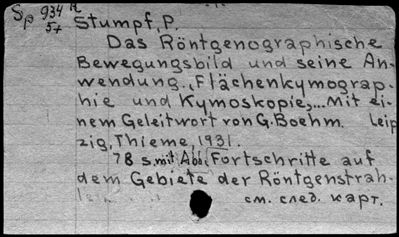 Sp 934 R
57
Stumpf, P.
Das Röntgenographische
Bewegungsbild und seine An-
wendung., Flächenkymograp-
hie und Kymoskopie,... Mit ei-
nem Geleitwort von G. Boehm. Leip-
zig, Thieme, 1931.
78 s. mit Abb. Fortschritte auf
dem Gebiete der Röntgenstrah-
см. след. карт.